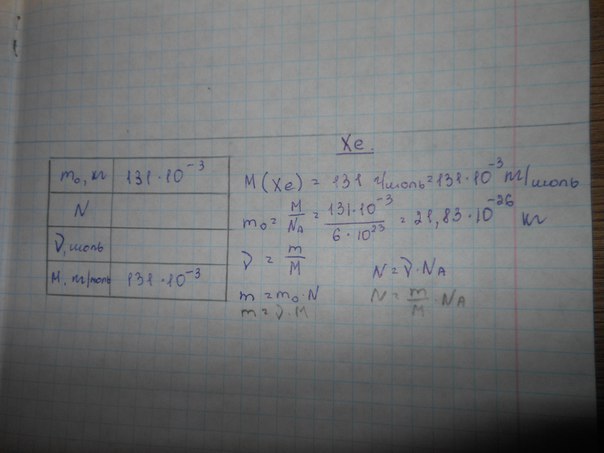 Xe
m₀, кг 131·10⁻³
N
ν, моль
M, кг/моль 131·10⁻³
M(Xe) = 131 г/моль = 131·10⁻³ кг/моль
m₀ = M/Nₐ = 131·10⁻³/6·10²³ = 21,83·10⁻²⁶ кг
ν = m/M
m = m₀·N
m = ν·M
N = ν·Nₐ
N = m/M·Nₐ